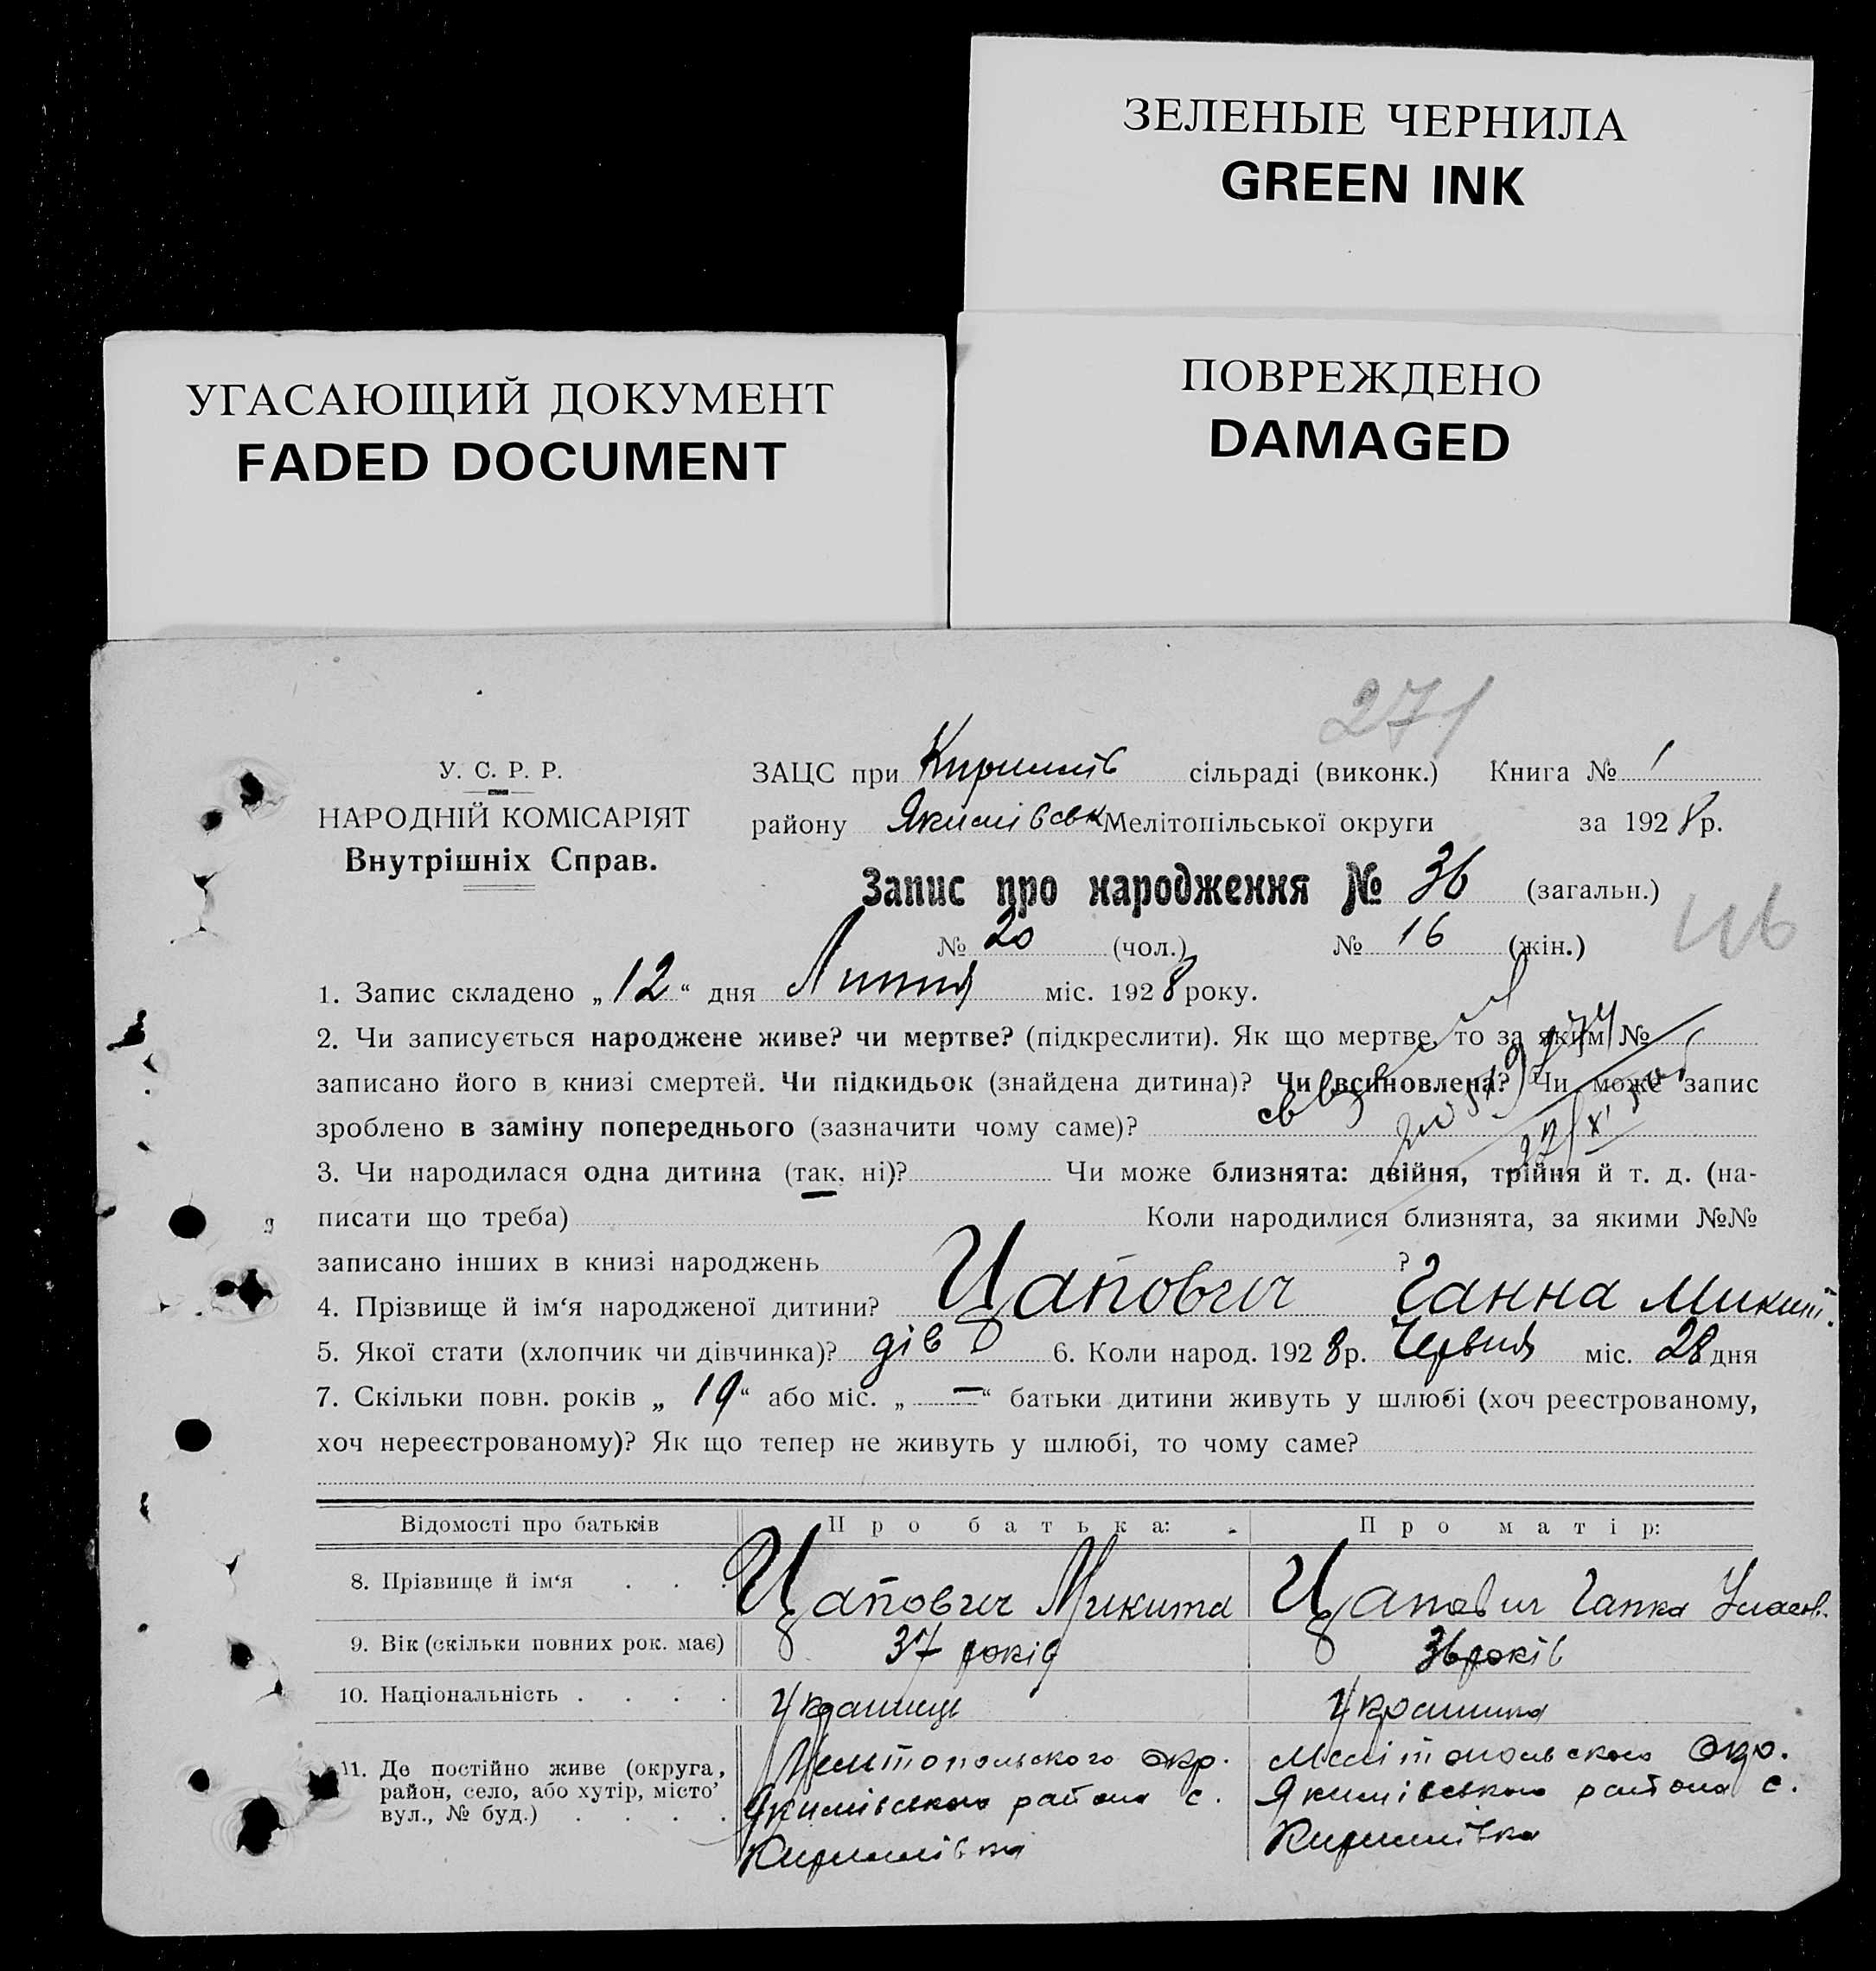 ЗЕЛЕНЫЕ ЧЕРНИЛА
GREEN INK
УГАСАЮЩИЙ ДОКУМЕНТ
FADED DOCUMENT
ПОВРЕЖДЕНО
DAMAGED
271
У. С. Р. Р.
НАРОДНІЙ КОМІСАРІЯТ
Внутрішніх Справ.
ЗАЦС при Кирилів сільраді (виконк.) Книга № 1
району Якимівськ Мелітопільської округи за 1928 р.
Запис про народження № 36 (загальн.)
№ 20 (чол.) № 16 (жін.)
1. Запис складено „12“ дня Липня міс. 1928 року.
2. Чи записується народжене живе? чи мертве? (підкреслити). Як що мертве, то за яким №
записано його в книзі смертей. Чи підкидьок (знайдена дитина)? Чи всиновлена? Чи може запис
зроблено в заміну попереднього (зазначити чому саме)?
3. Чи народилася одна дитина (так, ні)? Чи може близнята: двійня, трійня й т. д. (на-
писати що треба) Коли народилися близнята, за якими №№
записано інших в книзі народжень ?
4. Прізвище й ім‘я народженої дитини? Цапович Ганна Микит.
5. Якої стати (хлопчик чи дівчинка)? дів 6. Коли народ. 1928 р. Червня міс. 28 дня
7. Скільки повн. років „19“ або міс. „—“ батьки дитини живуть у шлюбі (хоч реєстрованому,
хоч нереєстрованому)? Як що тепер не живуть у шлюбі, то чому саме?
Відомості про батьків Про батька: Про матір:
8. Прізвище й ім‘я . . . Цапович Микита Цапович Гапка Уласов.
9. Вік (скільки повних рок. має) 37 років 36 років
10. Національність . . . . Українець Українка
11. Де постійно живе (округа, район, село, або хутір, місто’ вул., № буд.) . . . .
Мелітопольського окр.
Якимівського района с.
Кирилівка
Мелітопольського Окр.
Якимівського района с.
Кирилівка